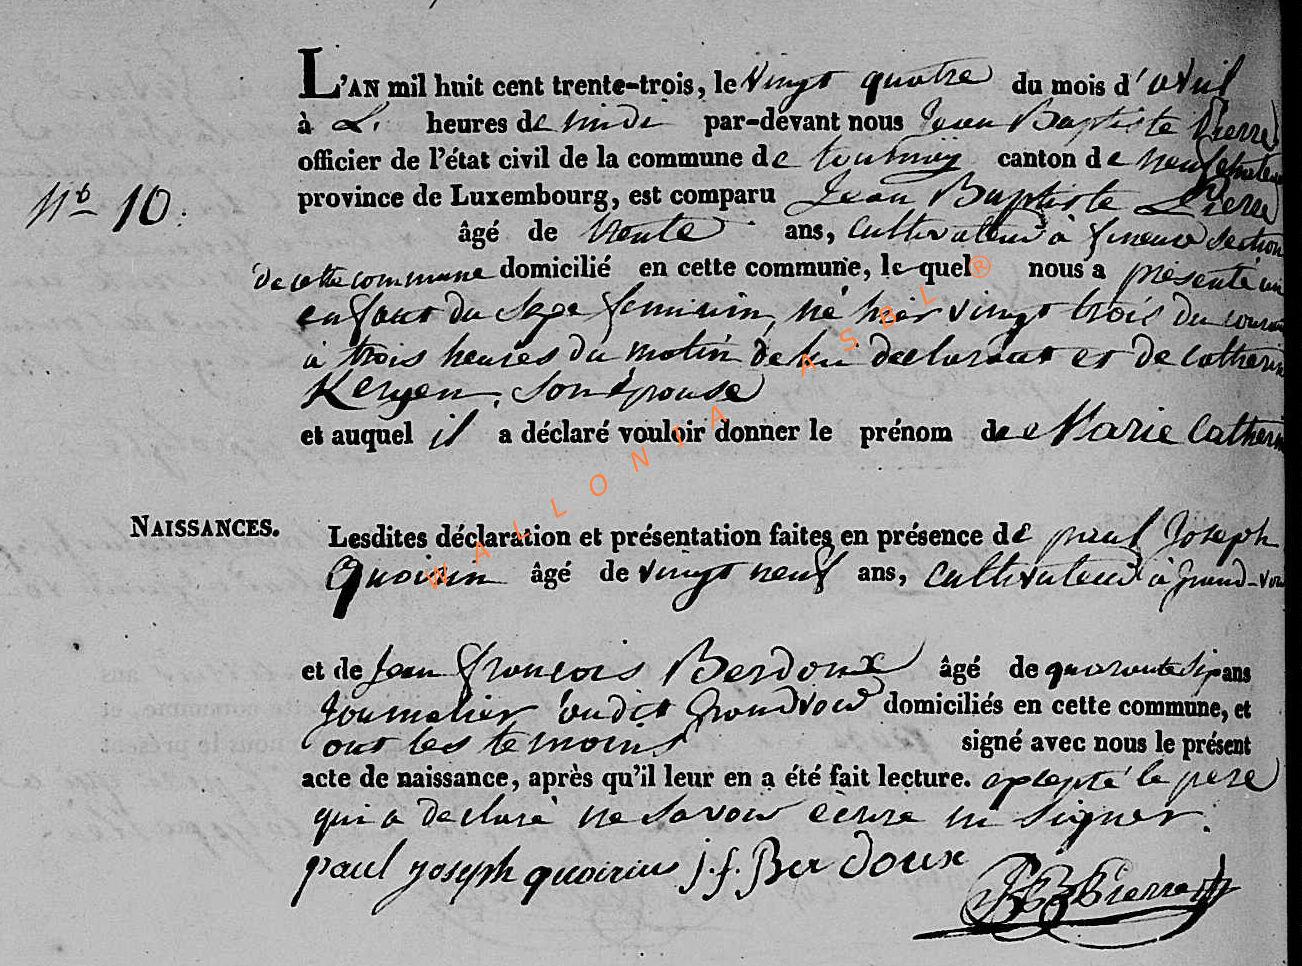 L'AN mil huit cent trente-trois, le vingt quatre du mois d'avril
à heures de midi par-devant nous Jean Baptiste Pierre
officier de l'état civil de la commune de tournay canton de neufchateau
N° 10.
province de Luxembourg, est comparu Jean Baptiste Pierre
âgé de trente ans, cultivateur à section
de cette commune domicilié en cette commune, lequel nous a présenté un
enfant du sexe feminin, né hier vingt trois du courant
à trois heures du matin de lui declarant et de Catherin
son épouse
et auquel il a déclaré vouloir donner le prénom de Marie Catherin
NAISSANCES.
Lesdites déclaration et présentation faites en présence de paul Joseph
Quoirin âgé de vingt neuf ans, cultivateur à grand-voir
et de Jean françois Berdoux âgé de quarante six ans
Journalier audit Grandvoir domiciliés en cette commune, et
ont les temoins signé avec nous le présent
acte de naissance, après qu'il leur en a été fait lecture. excepté le pere
qui a declaré ne savoir ecrire ni signer.
paul joseph quoirin j. f. Berdoux
JB Pierre
WALLONIA ASBL ®